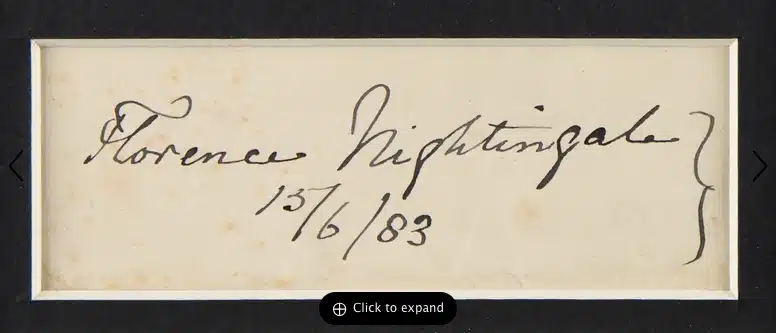 Florence Nightingale
15/6/83
Click to expand